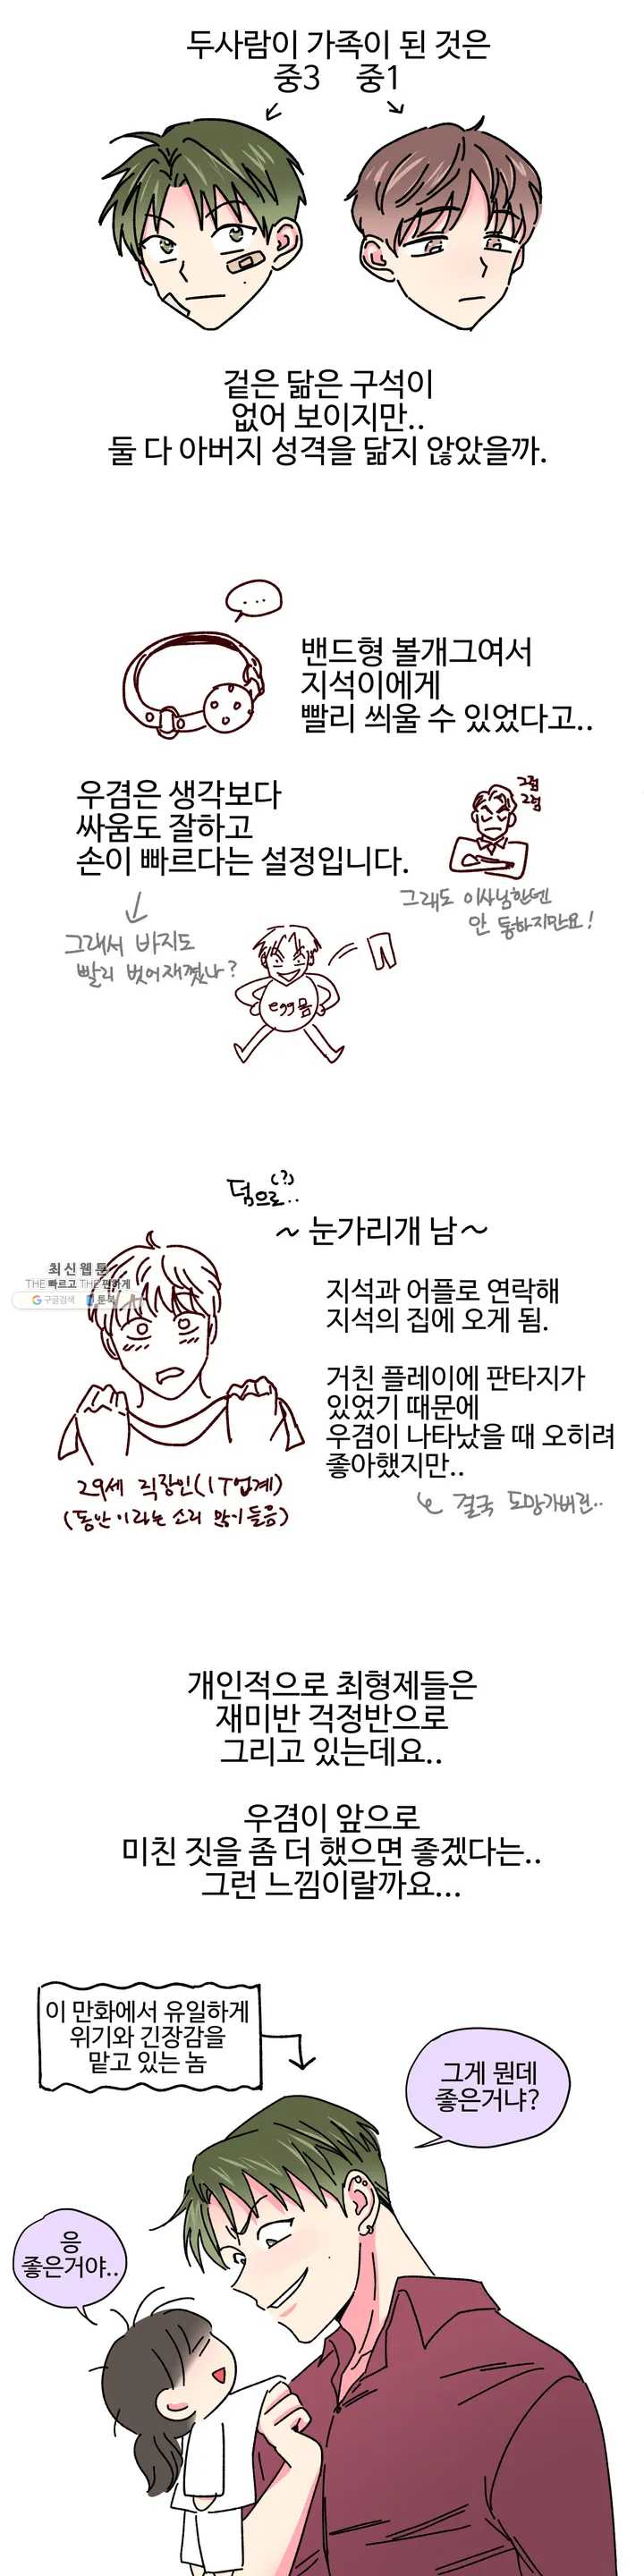 두사람이 가족이 된 것은
중3 중1
겉은 닮은 구석이
없어 보이지만..
둘 다 아버지 성격을 닮지 않았을까.
...
밴드형 볼개그여서
지석이에게
빨리 씌울 수 있었다고..
우겸은 생각보다
싸움도 잘하고
손이 빠르다는 설정입니다.
그럼
그럼
그래도 이사님한텐
안 통하지만요!
그래서 바지도
빨리 벗어재꼈나?
egg몸
덤으로(?)..
~ 눈가리개 남~
최신웹툰
THE 빠르고 THE 편하게
구글검색 툰북
지석과 어플로 연락해
지석의 집에 오게 됨.
거친 플레이에 판타지가
있었기 때문에
우겸이 나타났을 때 오히려
좋아했지만..
결국 도망가버린..
29세 직장인(IT업계)
(동안이라는 소리 많이 들음)
개인적으로 최형제들은
재미반 걱정반으로
그리고 있는데요..
우겸이 앞으로
미친 짓을 좀 더 했으면 좋겠다는..
그런 느낌이랄까요...
이 만화에서 유일하게
위기와 긴장감을
맡고 있는 놈
그게 뭔데
좋은거냐?
응
좋은거야..